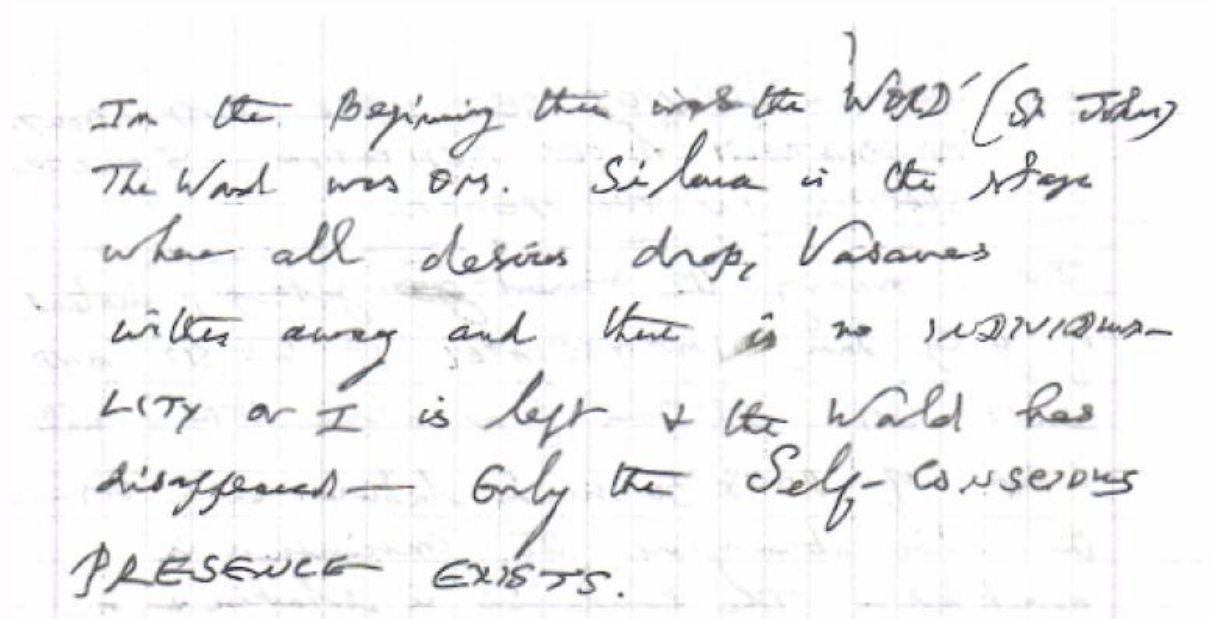 In the Beginning there was the 'WORD' (St John)
The Word was OM. Silence is the stage
where all desires drop, Vasanas
wither away and there is no INDIVIDUA-
LITY or I is left & the World has
disappeared — Only the Self-Conscious
PRESENCE EXISTS.